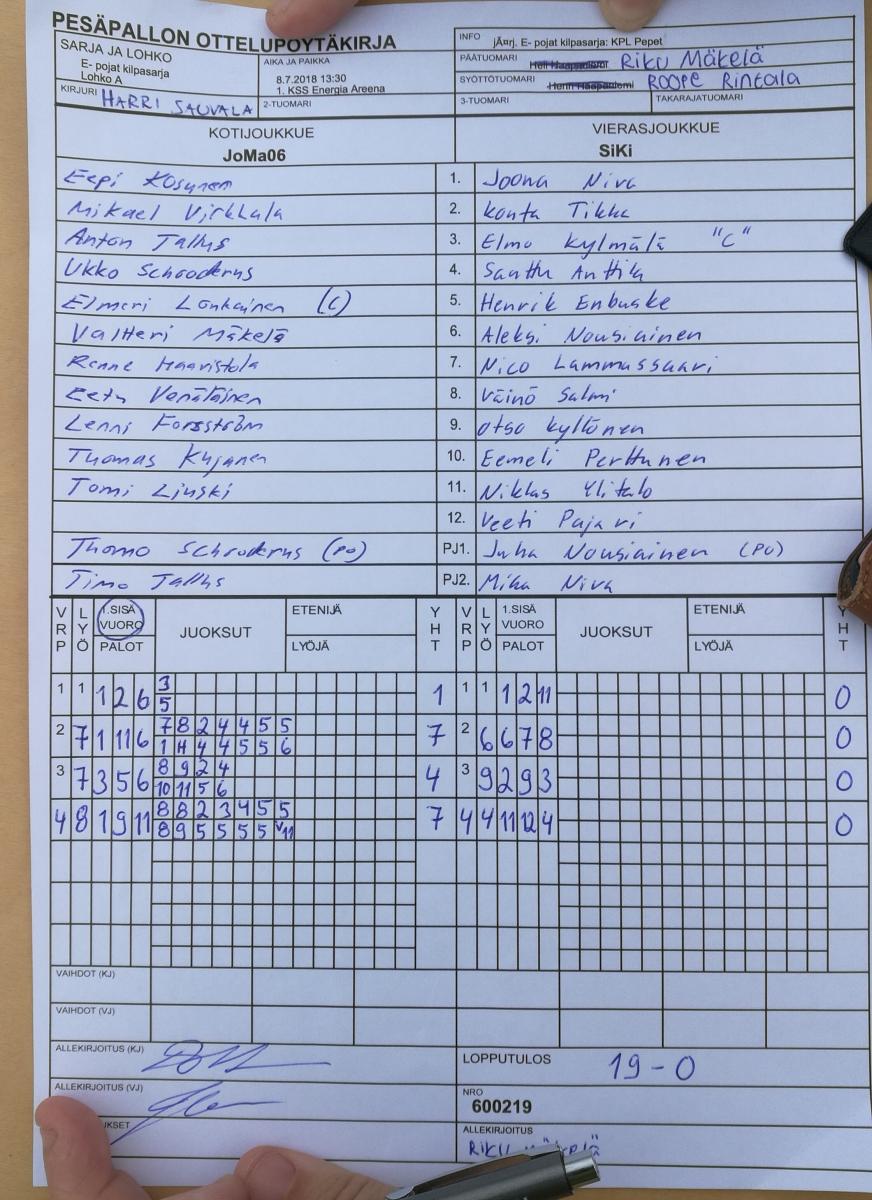 PESÄPALLON OTTELUPÖYTÄKIRJA
SARJA JA LOHKO
E- pojat kilpasarja
Lohko A
AIKA JA PAIKKA
8.7.2018 13:30
1. KSS Energia Areena
INFO jÄ¤rj. E- pojat kilpasarja: KPL Pepet
PÄÄTUOMARI RIKU MÄKELÄ
SYÖTTÖTUOMARI ROOPE RINTALA
KIRJURI HARRI SAUVALA
2-TUOMARI
3-TUOMARI
TAKARAJATUOMARI
KOTIJOUKKUE
JoMa06
VIERASJOUKKUE
SiKi
Eepi Kosunen 1. Joona Niva
Mikael Virkkala 2. Konta Tikka
Anton Tallus 3. Elmo Kylmälä "C"
Ukko Schroderus 4. Santtu Anttila
Elmeri Lankainen (C) 5. Henrik Enbuske
Valtteri Mäkelä 6. Aleksi Nousiainen
Renne Haaristola 7. Nico Lammassaari
Eetu Venäläinen 8. Väinö Salmi
Lenni Forsström 9. Otso Kyllönen
Thomas Kujanen 10. Eemeli Perttunen
Tomi Linski 11. Niklas Ylitalo
12. Veeti Pajari
Thomo Schroderus (PO) PJ1. Juha Nousiainen (PJ)
Timo Tallus PJ2. Mika Niva
VRP LYÖ 1.SISÄ VUORO PALOT JUOKSUT ETENIJÄ LYÖJÄ YHT VRP LYÖ 1.SISÄ VUORO PALOT JUOKSUT ETENIJÄ LYÖJÄ YHT
3
1 1 1 2 6 5 1 1 1 1 2 11 0
7 8 2 4 4 5 5
2 7 1 11 6 1 H 4 4 5 5 6 7 2 6 6 7 8 0
8 9 2 4
3 7 3 5 6 10 11 5 6 4 3 9 2 9 3 0
8 8 2 3 4 5 5
4 8 1 9 11 8 9 5 5 5 5 V11 7 4 4 11 12 4 0
VAIHDOT (KJ)
VAIHDOT (VJ)
ALLEKIRJOITUS (KJ)
LOPPUTULOS 19-0
ALLEKIRJOITUS (VJ)
NRO
600219
KSET
ALLEKIRJOITUS
RIKU